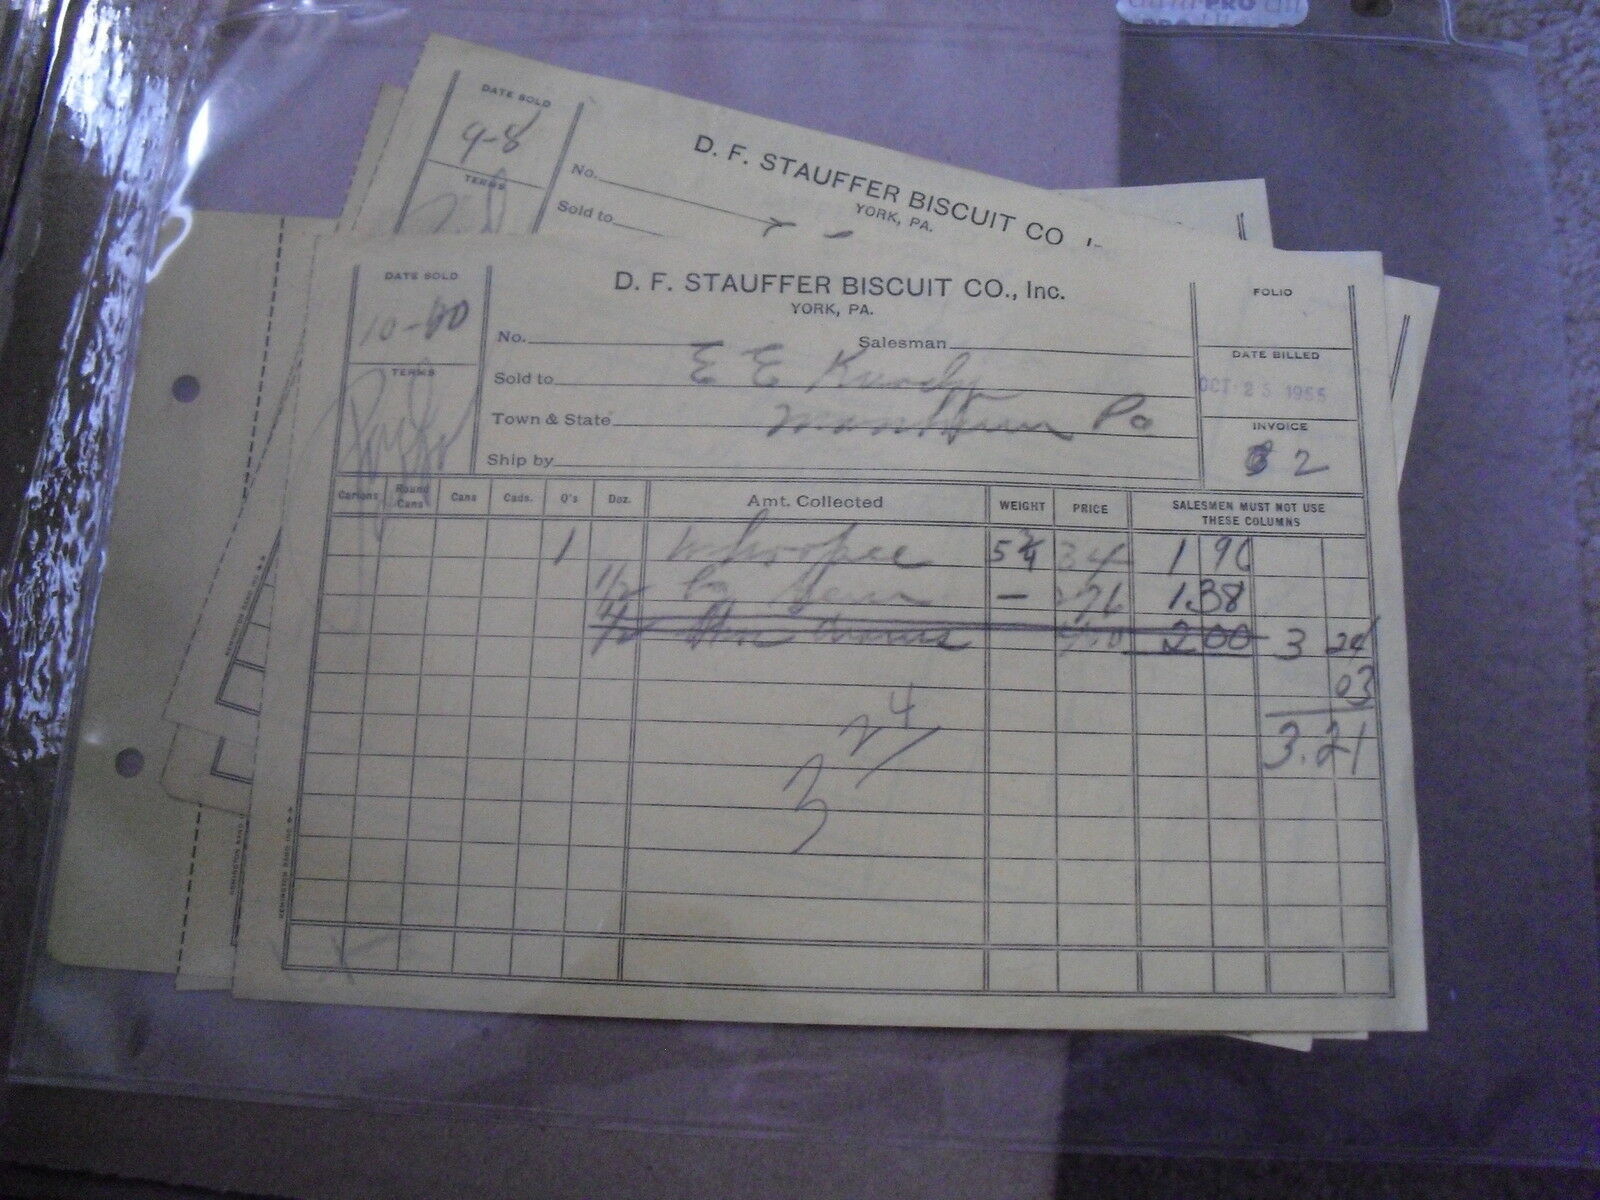 PRO
PRO
DATE SOLD
9-8
TERMS
D. F. STAUFFER BISCUIT CO
YORK, PA.
No.
Sold to
D. F. STAUFFER BISCUIT CO., Inc.
YORK, PA.
DATE SOLD
10-20
TERMS
No. Salesman
Sold to E E
Town & State Pa
Ship by
FOLIO
DATE BILLED
OCT 25 1955
INVOICE
2
Cartons Round Cans Cans Cads. Q's Doz. Amt. Collected WEIGHT PRICE SALESMEN MUST NOT USE THESE COLUMNS
1 Whoopee 5 3/4 34 1 96
1/2 — 276 1.38
1/2 2 00 3 24
03
3.21
REMINGTON RAND INC.